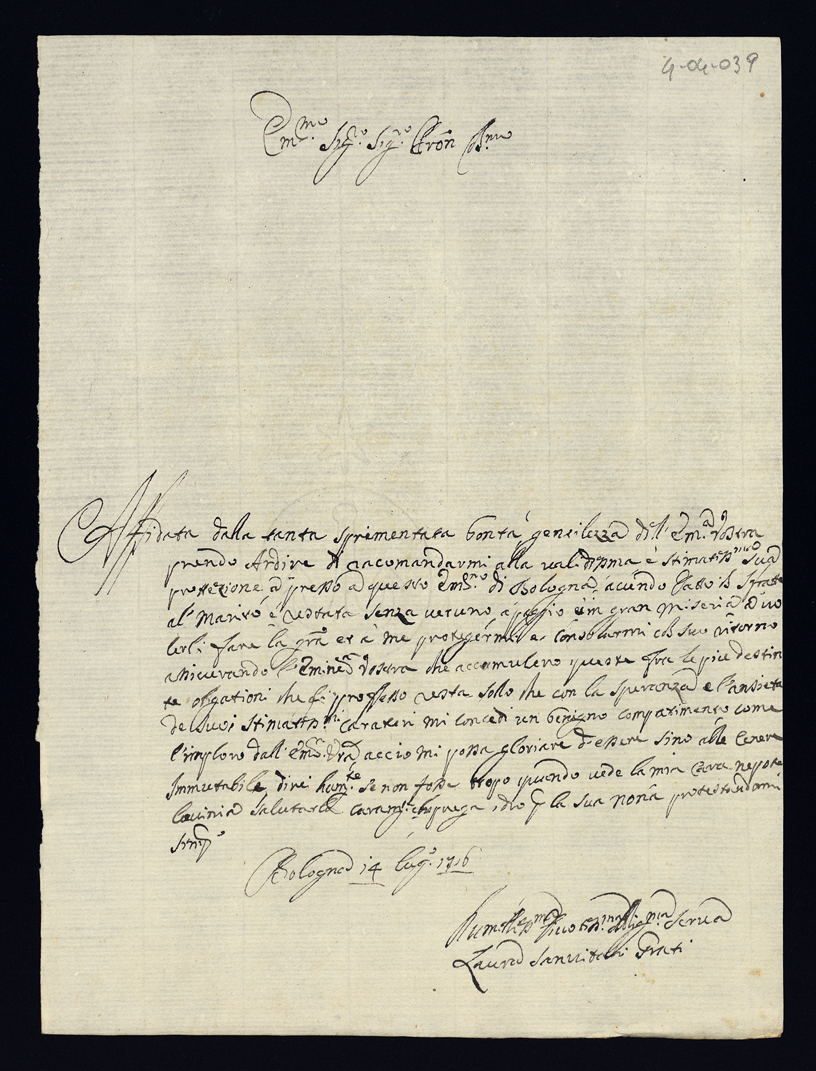 4-04-039
Em.mo Sig.re Sig.re Pron Col.mo
Affidata dalla tanta sprimentata bontà, gensilezza di l' Em.a Vostra
prendo Ardire di racomandarmi alla validissma è stimatiss.ma Sua
protezione, apresso a questo Em.mo di Bologna, auendo datto il sfratto
al' Marito è restata senza ueruno apoggio è in gran miseria
fare la gra et à me protegermi e consolarmi col suo ritorno
assicurando l'Eminea Vostra che accumulero queste fra le piu destin
te obligationi che li proffesso resta sollo che con la speranza e l'ansieta
de suoi stimatiss.mi carateri mi concedi un benigno compatimento come
l'imploro dall' Em.a Vra accio mi possa gloriare d'essere sino alle cenere
Immutabile, direi se non fosse tropo quando uede la mia Cara nepote
lauinia salutarla caram.te che prega idio p la sua nona protestandomi
semp.e
Bologna 14 lug.o 1716
Humiliss.ma Diuotiss.ma Oblig.ma Serua
Laura Sanuitali Prati